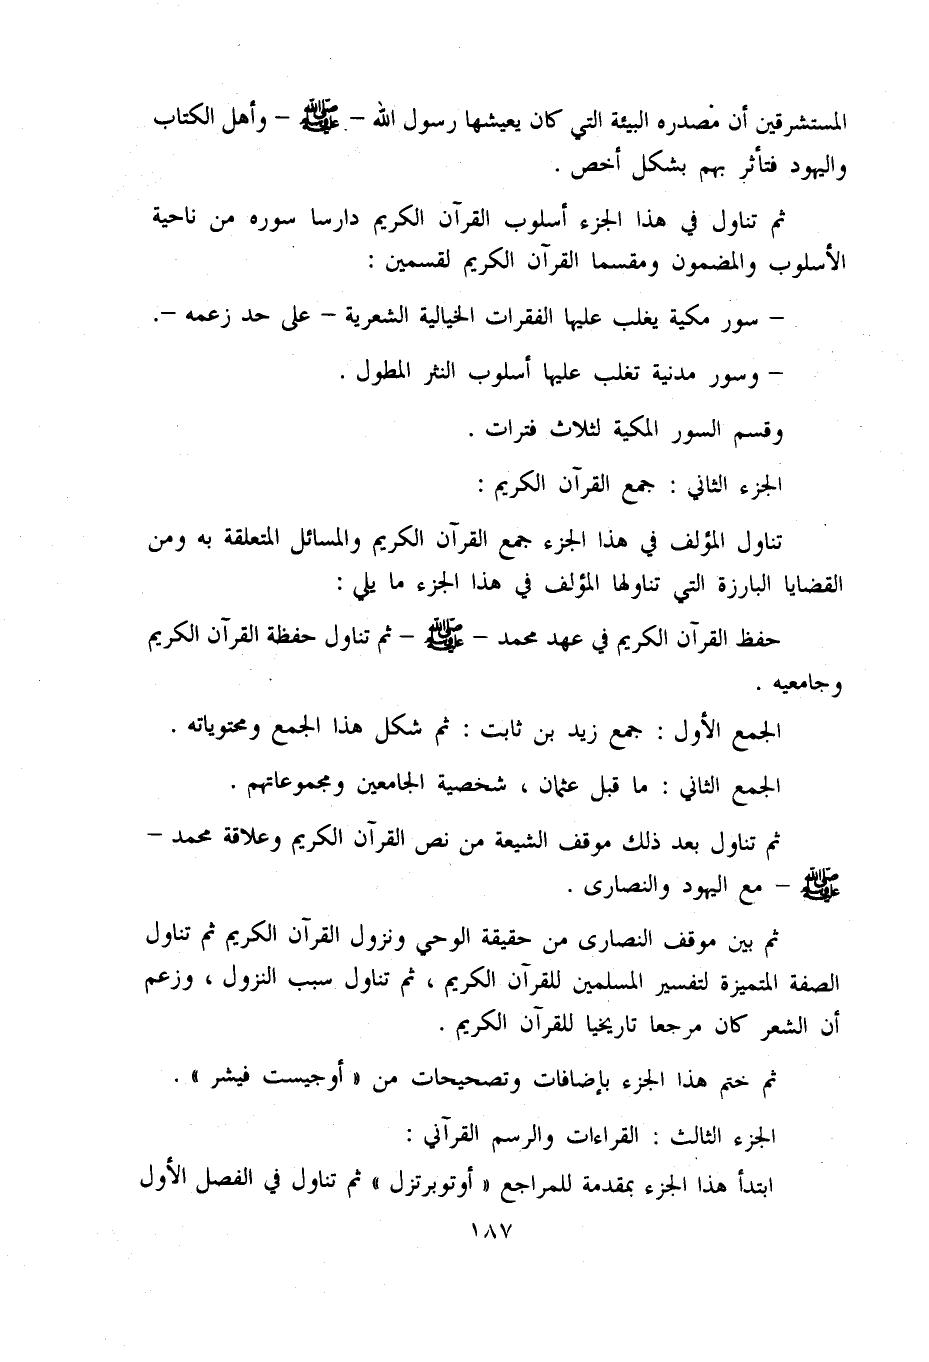 المستشرقين أن مصدره البيئة التي كان يعيشها رسول الله – ﷺ – وأهل الكتاب
واليهود فتأثر بهم بشكل أخص .
ثم تناول في هذا الجزء أسلوب القرآن الكريم دارسا سوره من ناحية
الأسلوب والمضمون ومقسما القرآن الكريم لقسمين :
– سور مكية يغلب عليها الفقرات الخيالية الشعرية – على حد زعمه –.
– وسور مدنية تغلب عليها أسلوب النثر المطول .
وقسم السور المكية لثلاث فترات .
الجزء الثاني : جمع القرآن الكريم :
تناول المؤلف في هذا الجزء جمع القرآن الكريم والمسائل المتعلقة به ومن
القضايا البارزة التي تناولها المؤلف في هذا الجزء ما يلي :
حفظ القرآن الكريم في عهد محمد – ﷺ – ثم تناول حفظة القرآن الكريم
وجامعيه .
الجمع الأول : جمع زيد بن ثابت : ثم شكل هذا الجمع ومحتوياته .
الجمع الثاني : ما قبل عثمان ، شخصية الجامعين ومجموعاتهم .
ثم تناول بعد ذلك موقف الشيعة من نص القرآن الكريم وعلاقة محمد –
ﷺ – مع اليهود والنصارى .
ثم بين موقف النصارى من حقيقة الوحي ونزول القرآن الكريم ثم تناول
الصفة المتميزة لتفسير المسلمين للقرآن الكريم ، ثم تناول سبب النزول ، وزعم
أن الشعر كان مرجعا تاريخيا للقرآن الكريم .
ثم ختم هذا الجزء بإضافات وتصحيحات من « أوجيست فيشر » .
الجزء الثالث : القراءات والرسم القرآني :
ابتدأ هذا الجزء بمقدمة للمراجع « أوتوبرتزل » ثم تناول في الفصل الأول
١٨٧